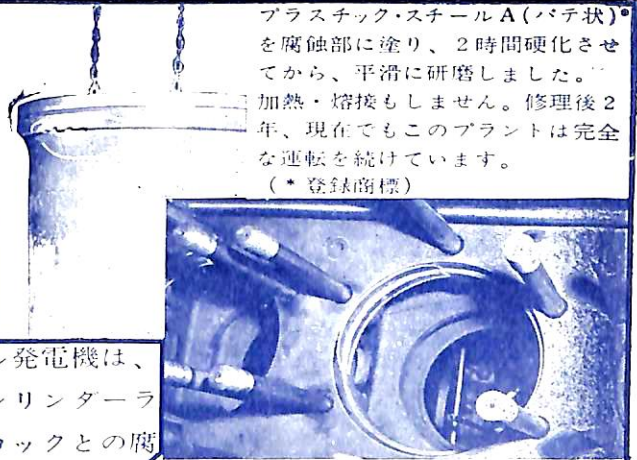 プラスチック・スチールA(パテ状)*
を腐蝕部に塗り、2時間硬化させ
てから、平滑に研磨しました。
加熱・熔接もしません。修理後2
年、現在でもこのプラントは完全
な運転を続けています。
(* 登録商標)
発電機は、
リンダーラ
ックとの腐